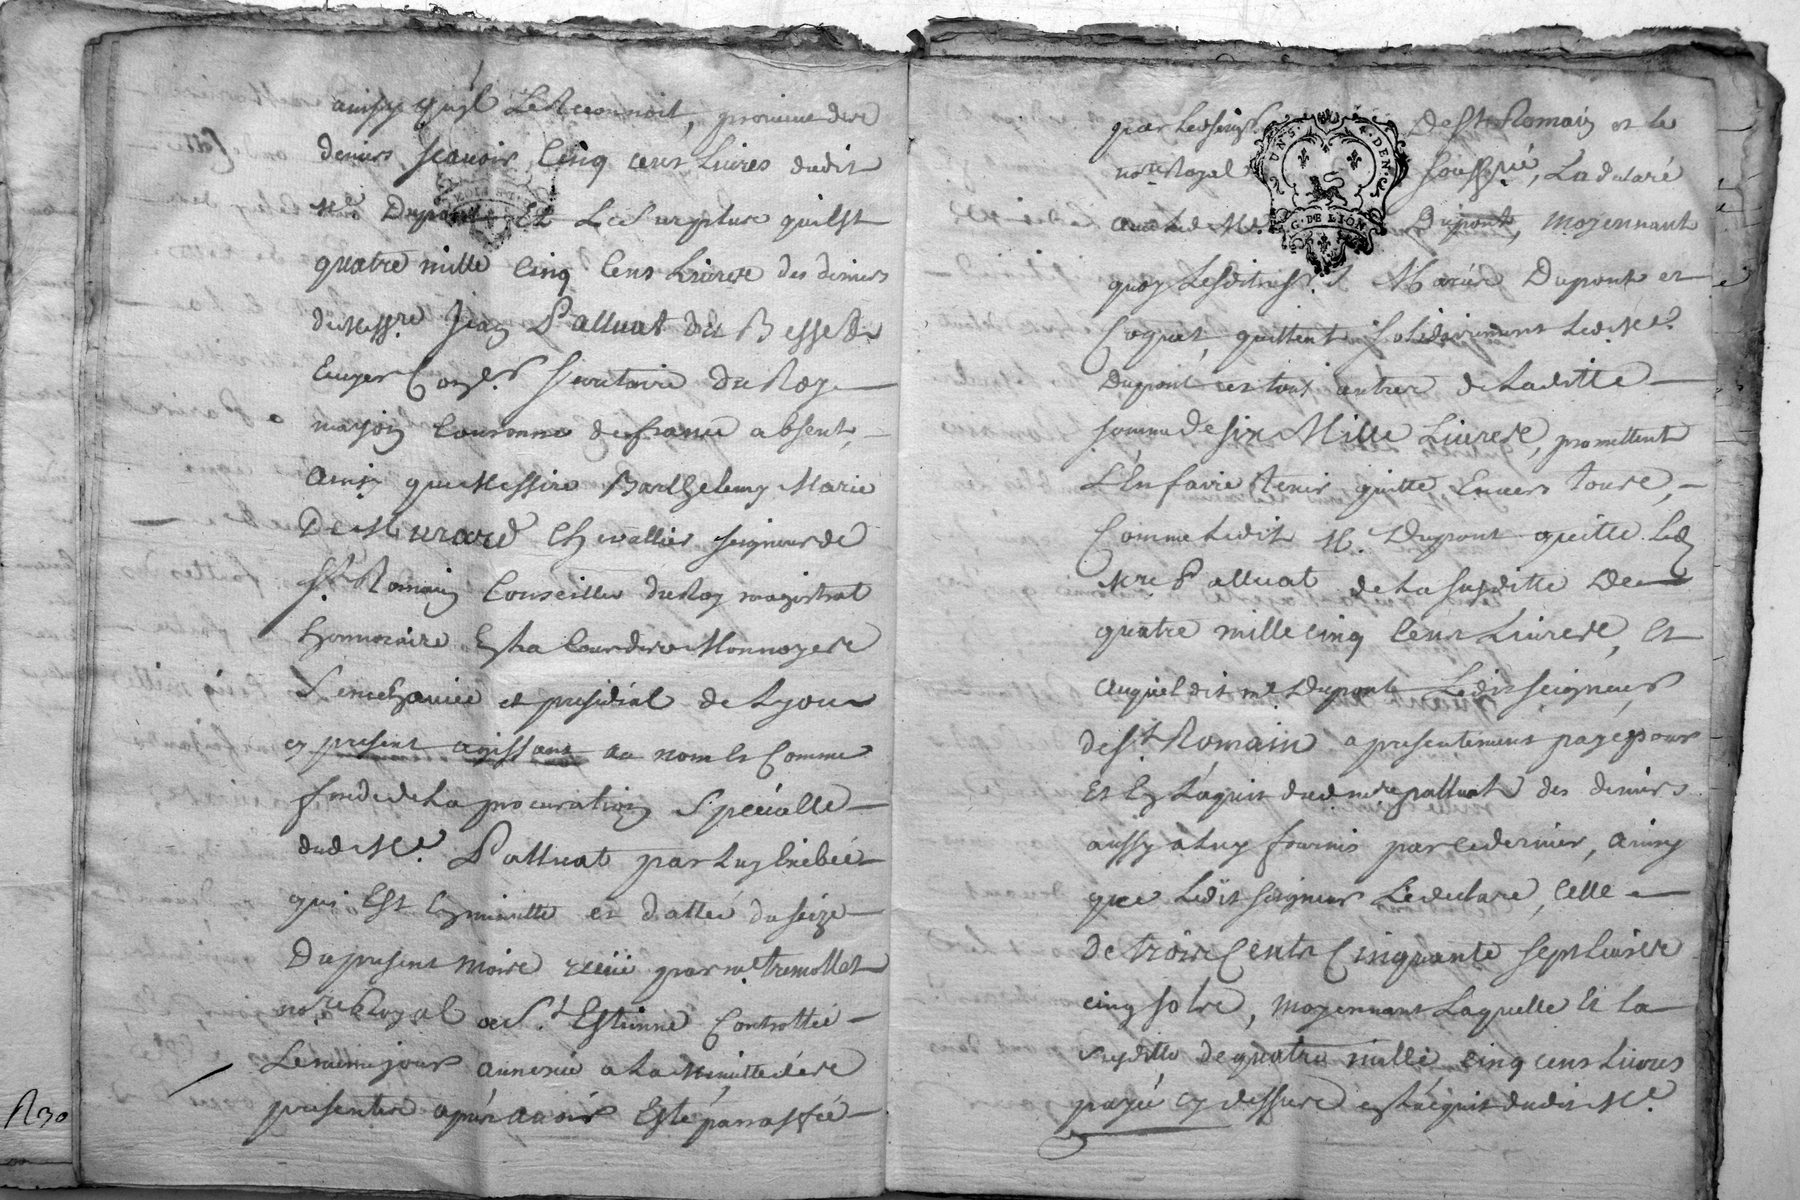 aussy qu'il Le Reconnoit, provenu des
deniers scavoir Cinq cens Livres dudit
Me Dupont Et Le Surplus qui Est
quatre mille Cinq Cens Livres des deniers
de Messre Jean Palluat du Besset
Ecuyer Conser Secretaire du Roy
maison Couronne de france absent,
Ainsy que Messire Barthelemy Marie
De Murard Chevallier seigneur de
St Romain Conseiller du Roy magistrat
honnoraire En la Cour des Monnoyes
Senechaucée et presidial de Lyon
cy present agissant au nom et Comme
fondé de La procuration Specialle
dud. Me Palluat par Luy
qui Est En minutte et dattée du seize
Du present mois reçüe par me tremollet
nore Royal a St Estienne Controllée
Le même jour annexée a La Minutte des
presentes après avoir Esté paraffée
par Led. Seigr De St Romain et le
nore Royal Soussigné, La
Dupont, moyennant
quoy Lesdits Marie Dupont et
Coquet, quittent Solidairement Led. Me
Dupont et tous autres de Laditte
somme de six Mille Livres, promettent
L'En faire tenir quitte Envers tous,
Comme Ledit M. Dupont quitte Led
Mre Palluat de La susditte De
quatre mille cinq Cens Livres, Et
auquel dit me Dupont Ledit seigneur
de St Romain a presentement payé pour
Et En L'aquit dud mre palluat des deniers
aussy a Luy fournis par ce dernier, ainsy
que Ledit seigneur Le declare, Celle
de trois Cents Cinquante sept Livres
cinq sols, moyennant Laquelle et la
susditte de quatre mille cinq cens Livres
payée cy dessus en L'aquit dudit Me
G. DE LION
R 30